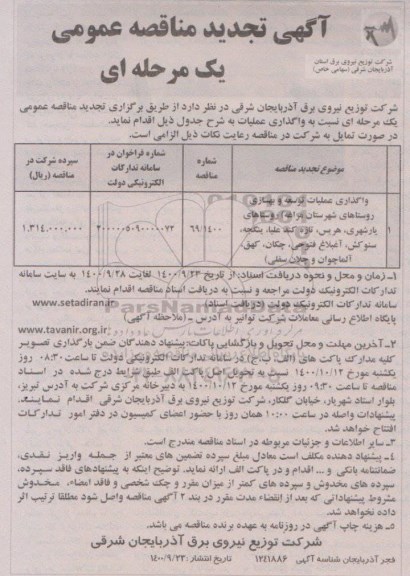 آگهی تجدید مناقصه عمومی
یک مرحله ای
شرکت توزیع نیروی برق استان
آذربایجان شرقی (سهامی خاص)
شرکت توزیع نیروی برق آذربایجان شرقی در نظر دارد از طریق برگزاری تجدید مناقصه عمومی
یک مرحله ای نسبت به واگذاری عملیات به شرح جدول ذیل اقدام نماید.
در صورت تمایل به شرکت در مناقصه رعایت نکات ذیل الزامی است.
موضوع تجدید مناقصه
شماره مناقصه
شماره فراخوان در سامانه تدارکات الکترونیکی دولت
سپرده شرکت در مناقصه (ریال)
۱
واگذاری عملیات توسعه و بهسازی
روستاهای شهرستان مراغه: روستاهای
یارشهری، هریس، تازه کند علیا، ینگجه،
سنوکش، آغبلاغ فتوحی، چکان، کهق،
آلماچوان و چلان سفلی)
۶۹/۱۴۰۰
۲۰۰۰۰۰۵۰۹۰۰۰۰۰۷۲
۱.۳۱۴.۰۰۰.۰۰۰
۱- زمان و محل و نحوه دریافت اسناد: از تاریخ ۱۴۰۰/۹/۲۳ لغایت ۱۴۰۰/۹/۲۸ به سایت سامانه
تدارکات الکترونیک دولت مراجعه و نسبت به دریافت اسناد مناقصه اقدام نمایند.
سامانه تدارکات الکترونیک دولت (دریافت اسناد) www.setadiran.ir
پایگاه اطلاع رسانی معاملات شرکت توانیر به آدرس - (ملاحظه آگهی) www.tavanir.org.ir
۲- آخرین مهلت و محل تحویل و بازگشایی پاکات: پیشنهاد دهندگان ضمن بارگذاری تصویر
کلیه مدارک پاکت های (الف - ب - ج) در سامانه تدارکات الکترونیکی دولت تا ساعت ۰۸:۳۰ روز
یکشنبه مورخ ۱۴۰۰/۱۰/۱۲ نسبت به تحویل اصل پاکت الف طبق شرایط درج شده در اسناد
مناقصه تا ساعت ۰۹:۳۰ روز یکشنبه مورخ ۱۴۰۰/۱۰/۱۲ به دبیرخانه مرکزی شرکت به آدرس تبریز،
بلوار استاد شهریار، خیابان گلکار، شرکت توزیع نیروی برق آذربایجان شرقی اقدام نمایند.
پیشنهادات واصله در ساعت ۱۰:۰۰ همان روز با حضور اعضای کمیسیون در دفتر امور تدارکات
افتتاح خواهد شد.
۳- سایر اطلاعات و جزئیات مربوطه در اسناد مناقصه مندرج است.
۴- پیشنهاد دهنده مکلف است معادل مبلغ سپرده تضمین های معتبر از جمله واریز نقدی،
ضمانتنامه بانکی و ... اقدام و در پاکت الف ارائه نماید. توضیح اینکه به پیشنهادهای فاقد سپرده،
سپرده های مخدوش و سپرده های کمتر از میزان مقرر و چک شخصی و فاقد امضاء، مخدوش
مشروط پیشنهاداتی که بعد از انقضاء مدت مقرر در بند ۲ آگهی مناقصه واصل شود مطلقا ترتیب اثر
داده نخواهد شد.
۵- هزینه چاپ آگهی در روزنامه به عهده برنده مناقصه می باشد.
شرکت توزیع نیروی برق آذربایجان شرقی
فجر آذربایجان شناسه آگهی ۱۲۴۱۸۸۶ تاریخ انتشار: ۱۴۰۰/۹/۲۳